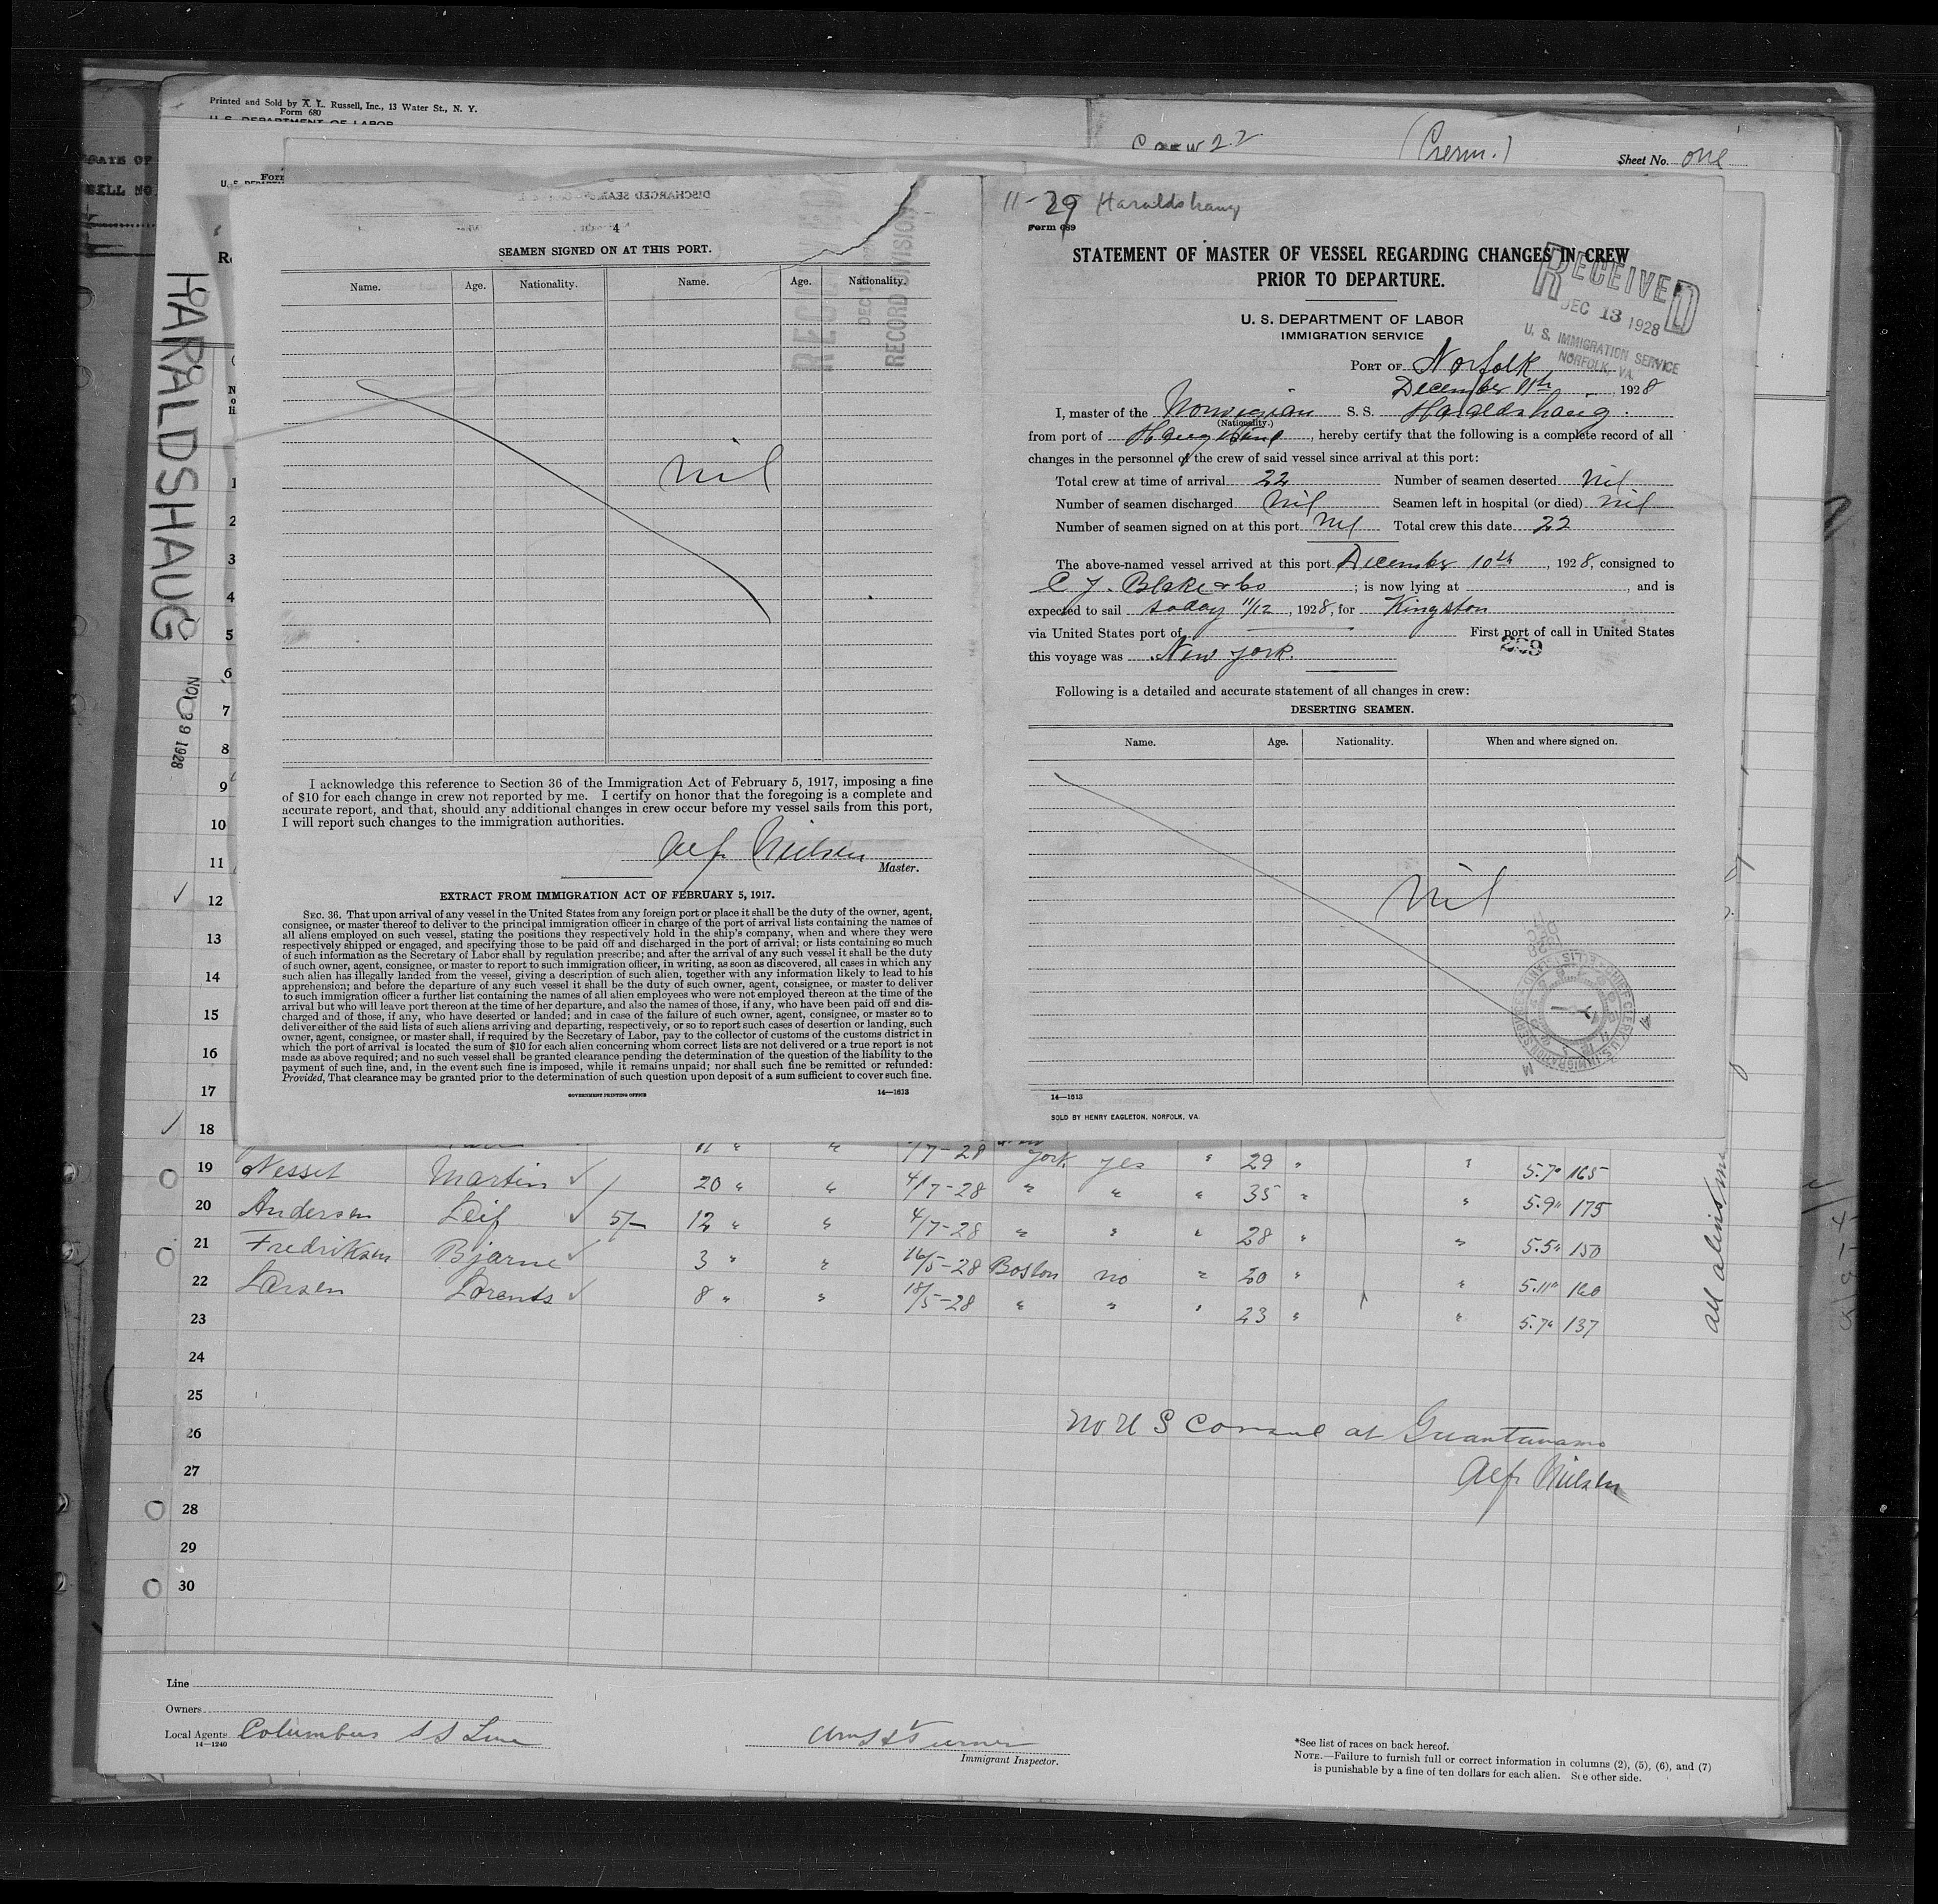 Printed and Sold by A. L. Russell, Inc., 13 Water St., N. Y.
Form 680
U. S. DEPARTMENT OF LABOR
Crew 22
Sheet No. one
HARALDSHAUG
NOV 29 1928
4
SEAMEN SIGNED ON AT THIS PORT.
Name. Age. Nationality. Name. Age. Nationality.
nil
I acknowledge this reference to Section 36 of the Immigration Act of February 5, 1917, imposing a fine
of $10 for each change in crew not reported by me. I certify on honor that the foregoing is a complete and
accurate report, and that, should any additional changes in crew occur before my vessel sails from this port,
I will report such changes to the immigration authorities.
Alf Nielsen
Master.
EXTRACT FROM IMMIGRATION ACT OF FEBRUARY 5, 1917.
SEC. 36. That upon arrival of any vessel in the United States from any foreign port or place it shall be the duty of the owner, agent,
consignee, or master thereof to deliver to the principal immigration officer in charge of the port of arrival lists containing the names of
all aliens employed on such vessel, stating the positions they respectively hold in the ship's company, when and where they were
respectively shipped or engaged, and specifying those to be paid off and discharged in the port of arrival; or lists containing so much
of such information as the Secretary of Labor shall by regulation prescribe; and after the arrival of any such vessel it shall be the duty
of such owner, agent, consignee, or master to report to such immigration officer, in writing, as soon as discovered, all cases in which any
such alien has illegally landed from the vessel, giving a description of such alien, together with any information likely to lead to his
apprehension; and before the departure of any such vessel it shall be the duty of such owner, agent, consignee, or master to deliver
to such immigration officer a further list containing the names of all alien employees who were not employed thereon at the time of the
arrival but who will leave port thereon at the time of her departure, and also the names of those, if any, who have been paid off and dis-
charged and of those, if any, who have deserted or landed; and in case of the failure of such owner, agent, consignee, or master so to
deliver either of the said lists of such aliens arriving and departing, respectively, or so to report such cases of desertion or landing, such
owner, agent, consignee, or master shall, if required by the Secretary of Labor, pay to the collector of customs of the customs district in
which the port of arrival is located the sum of $10 for each alien concerning whom correct lists are not delivered or a true report is not
made as above required; and no such vessel shall be granted clearance pending the determination of the question of the liability to the
payment of such fine, and, in the event such fine is imposed, while it remains unpaid; nor shall such fine be remitted or refunded:
Provided, That clearance may be granted prior to the determination of such question upon deposit of a sum sufficient to cover such fine.
GOVERNMENT PRINTING OFFICE 14—1613
11-29 Haraldshaug
Form 689
STATEMENT OF MASTER OF VESSEL REGARDING CHANGES IN CREW
PRIOR TO DEPARTURE.
U. S. DEPARTMENT OF LABOR
IMMIGRATION SERVICE
RECEIVED
DEC 13 1928
U. S. IMMIGRATION SERVICE
NORFOLK, VA.
PORT OF Norfolk
December 11th, 1928
I, master of the Norwegian S. S. Haraldshaug.
(Nationality.)
from port of Haugesund, hereby certify that the following is a complete record of all
changes in the personnel of the crew of said vessel since arrival at this port:
Total crew at time of arrival 22 Number of seamen deserted nil
Number of seamen discharged Nil Seamen left in hospital (or died) nil
Number of seamen signed on at this port nil Total crew this date 22
The above-named vessel arrived at this port December 10th, 1928, consigned to
C J. Blake & Co; is now lying at , and is
expected to sail today 11/12, 1928, for Kingston
via United States port of First port of call in United States
this voyage was New York.
Following is a detailed and accurate statement of all changes in crew:
DESERTING SEAMEN.
Name. Age. Nationality. When and where signed on.
nil
14—1613
SOLD BY HENRY EAGLETON, NORFOLK, VA.
1
2
3
4
5
6
7
8
9
10
11
12
13
14
15
16
17
18
19 Nesset Martin 11 " " /7-28 York yes " 29 " " 5.7" 165
20 Andersen Leif 20 " " 4/7-28 " " " 35 " " 5.9" 175
21 Fredriksen Bjarne 5/- 12 " " 4/7-28 " " " 28 " " 5.5" 150
22 Larsen Lorents 3 " " 16/5-28 Boston no " 20 " " 5.11" 160
23 8 " " 18/5-28 " " " 23 " " 5.7" 137
24
25
26 No U S Consul at Guantanamo
27 Alf Nielsen
28
29
30
Line
Owners
Local Agents Columbus S S Line
14—1240
Immigrant Inspector.
*See list of races on back hereof.
NOTE.—Failure to furnish full or correct information in columns (2), (5), (6), and (7)
is punishable by a fine of ten dollars for each alien. See other side.